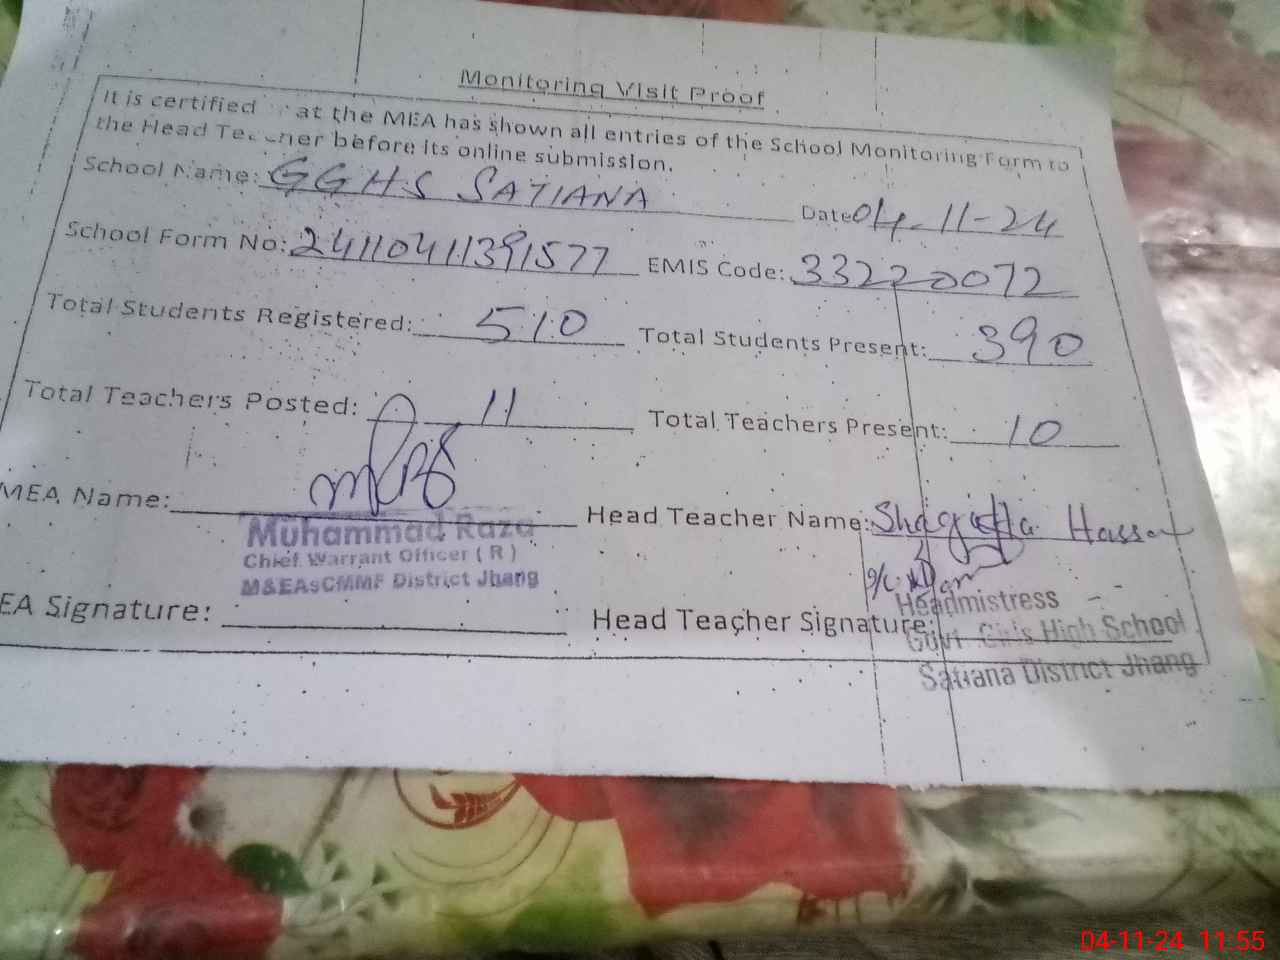 Monitoring Visit Proof
It is certified at the MEA has shown all entries of the School Monitoring Form to
the Head Teacher before its online submission.
School Name: GGHS SATIANA Date 04-11-24
School Form No: 24110411391577 EMIS Code: 33220072
Total Students Registered: 510 Total Students Present: 390
Total Teachers Posted: 11 Total Teachers Present: 10
MEA Name: Head Teacher Name: Shagufta Hassan
Muhammad Raza
Chief Warrant Officer (R)
M&EAsCMMF District Jhang
EA Signature: Head Teacher Signature:
Headmistress
Govt. Girls High School
Satiana District Jhang
04-11-24 11:55